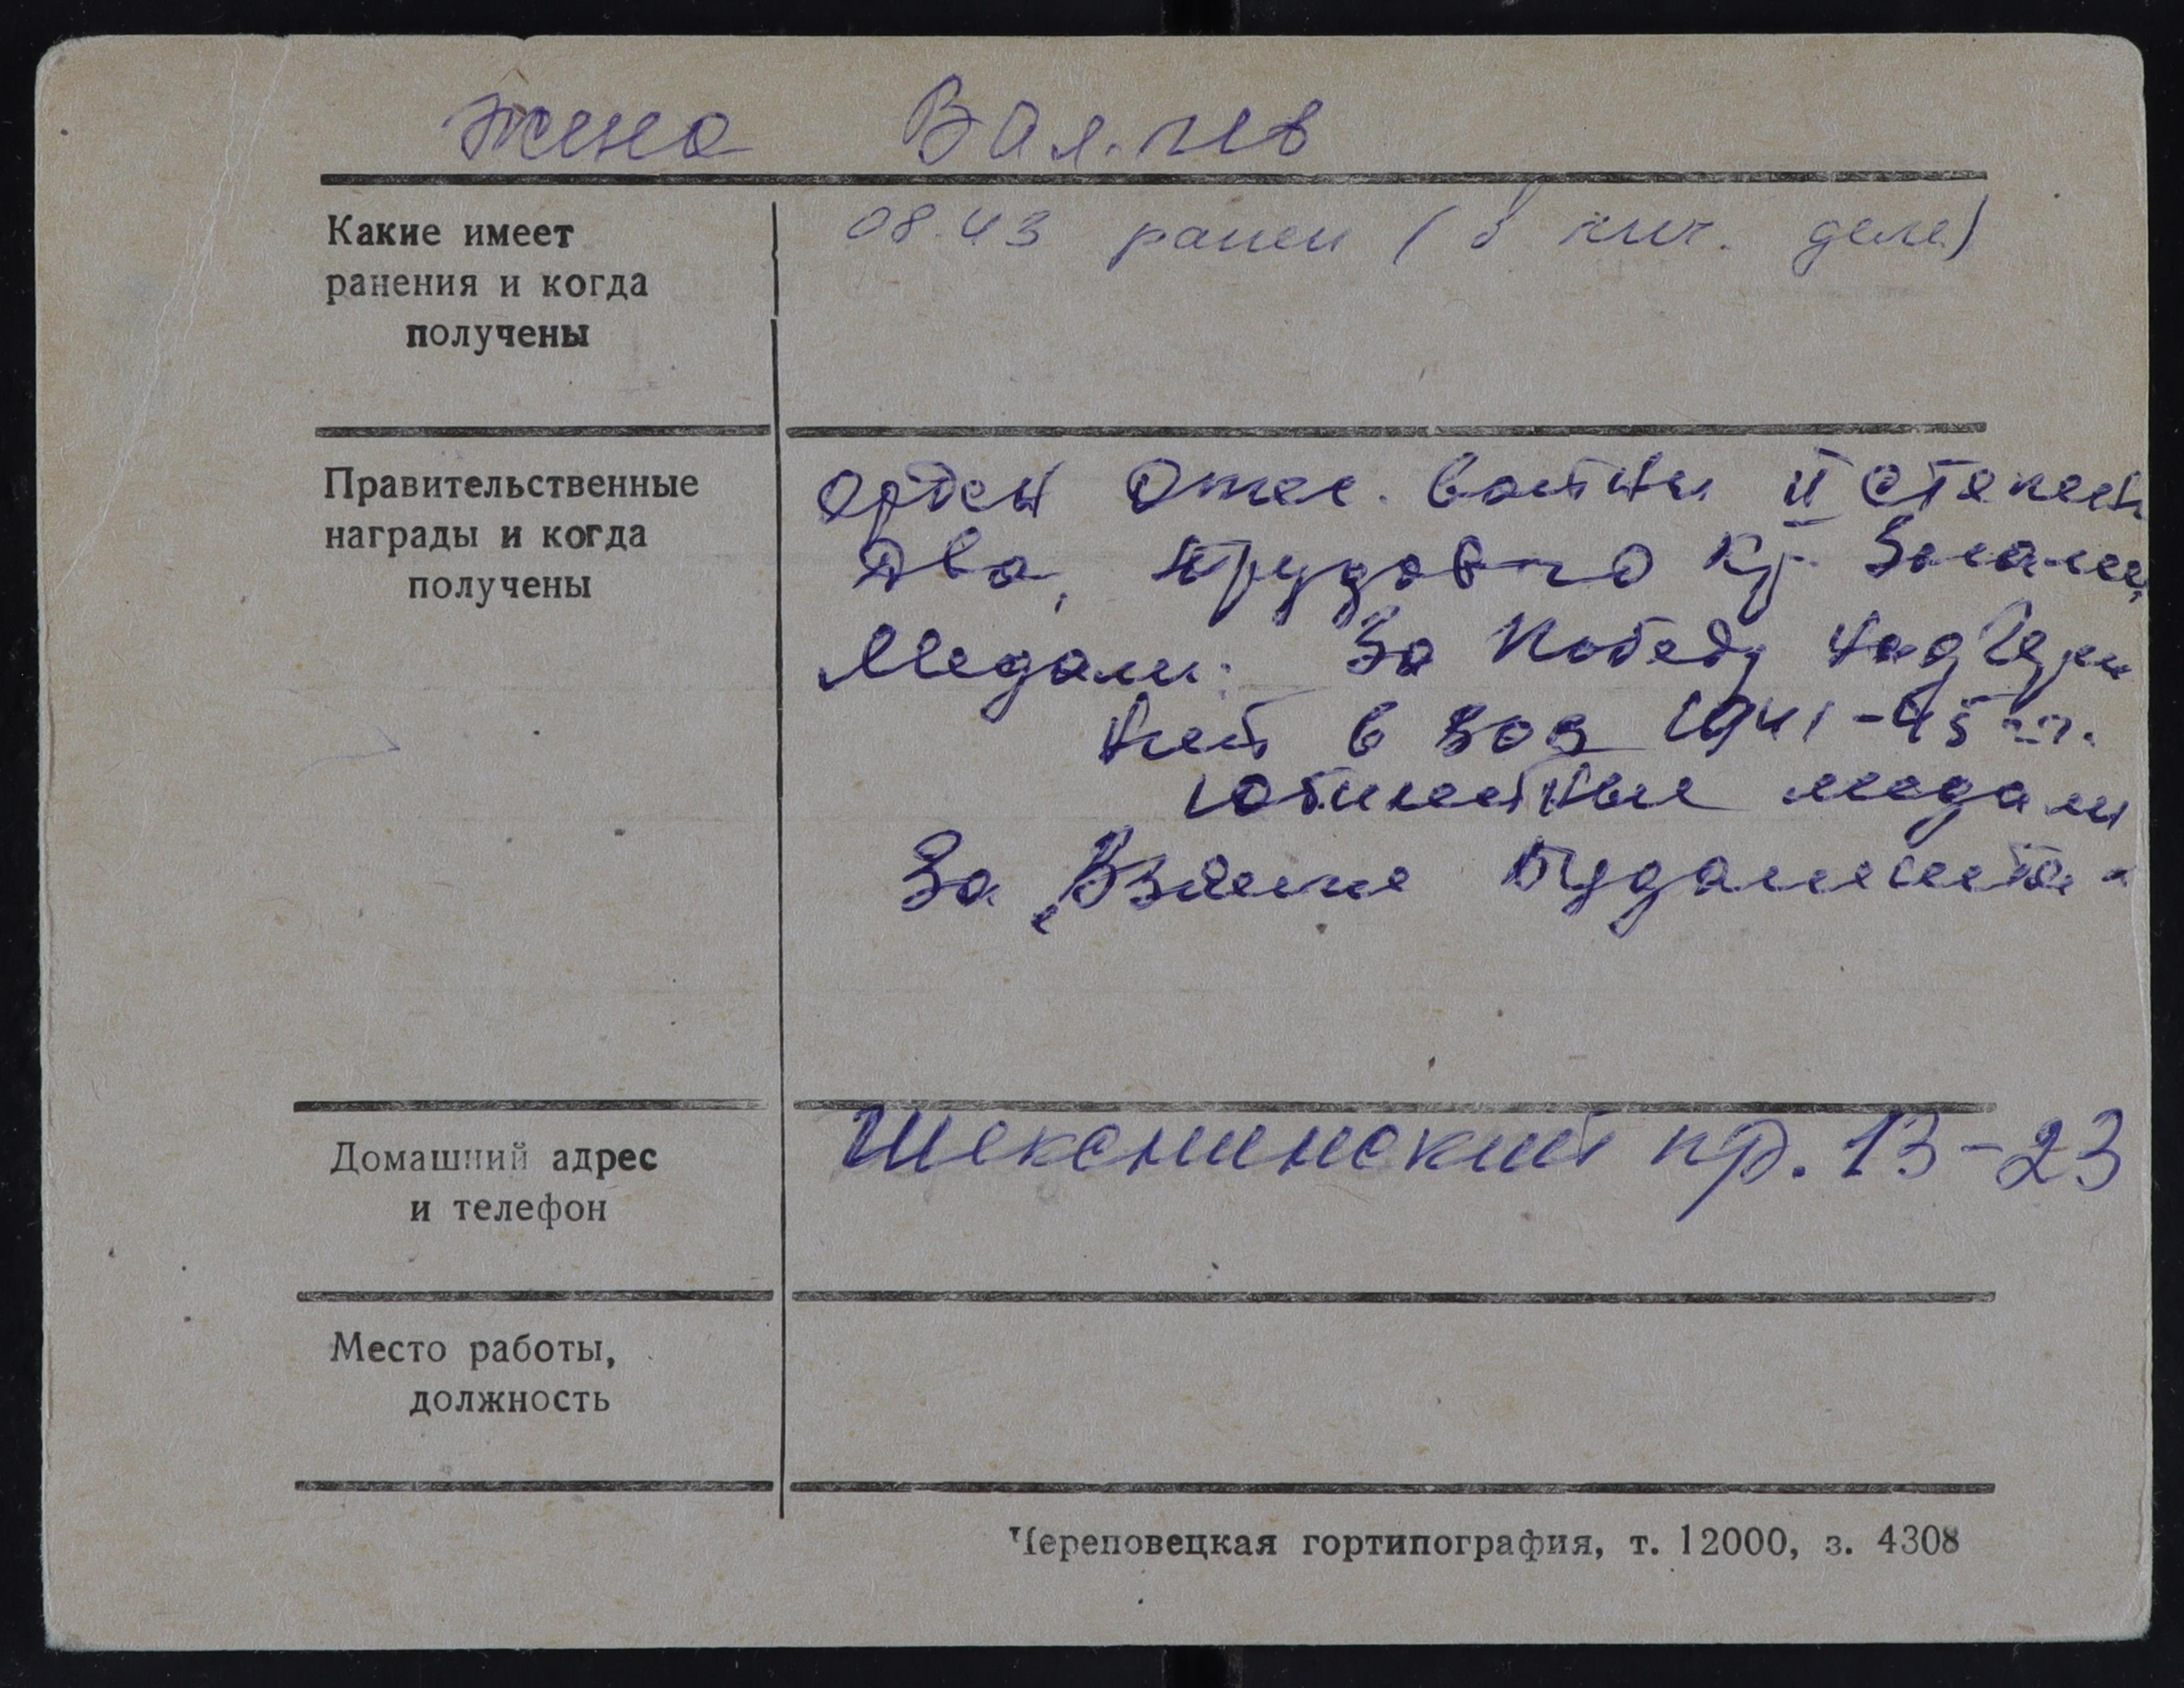 жена
Какие имеет
ранения и когда
получены
08.43 ранен (в лич. деле)
Правительственные
награды и когда
получены
орден Отеч. войны II степени
два, Трудового Кр. Знамени,
Медали: За Победу над Гер
ией в ВОВ 1941-45 гг.
юбилейные медали
За "Взятие Будапешта"
Домашний адрес
и телефон
Шекснинский пр. 13-23
Место работы,
должность
Череповецкая гортипография, т. 12000, з. 4308